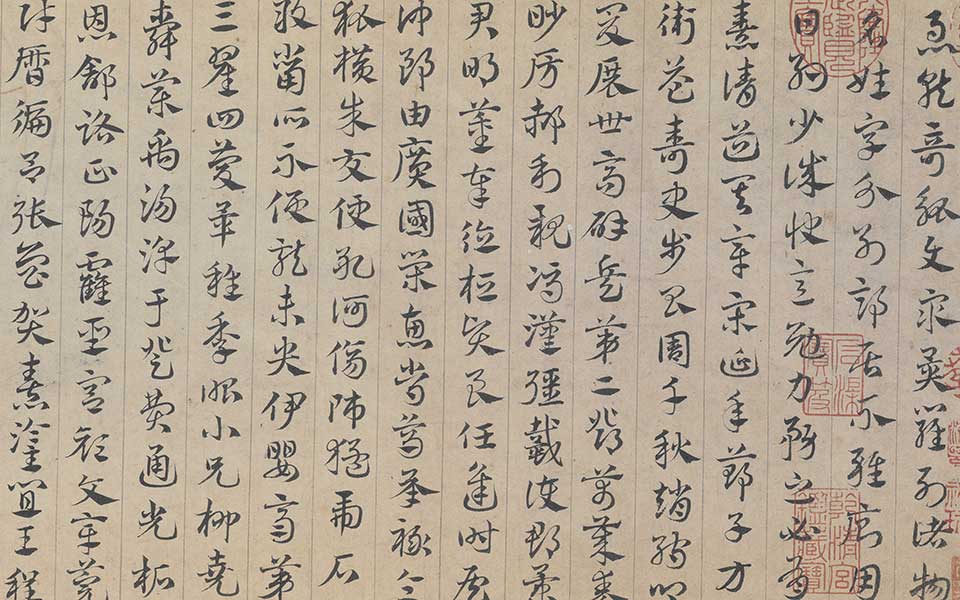 急就奇觚與眾異羅列諸物
名姓字分別部居不雜廁用
日約少誠快意勉力務之必有
憙請道其章宋延年鄭子方
衛益壽史步昌周千秋趙孺卿
爰展世高辟兵第二鄧萬歲秦
眇房郝利親馮漢彊戴護郡景
君明董奉德桓賢良任逢時侯
仲郎由廣國榮惠常烏承祿令
狐橫朱交便孔何傷師猛虎石
敢當所不侵龍未央伊嬰齊第
三翟回慶畢稚季昭小兄柳堯
舜藥禹湯淳于登費通光柘
恩舒路正陽霍聖宮顏文章莞
財曆偏呂張魯賀憙灌宜王程